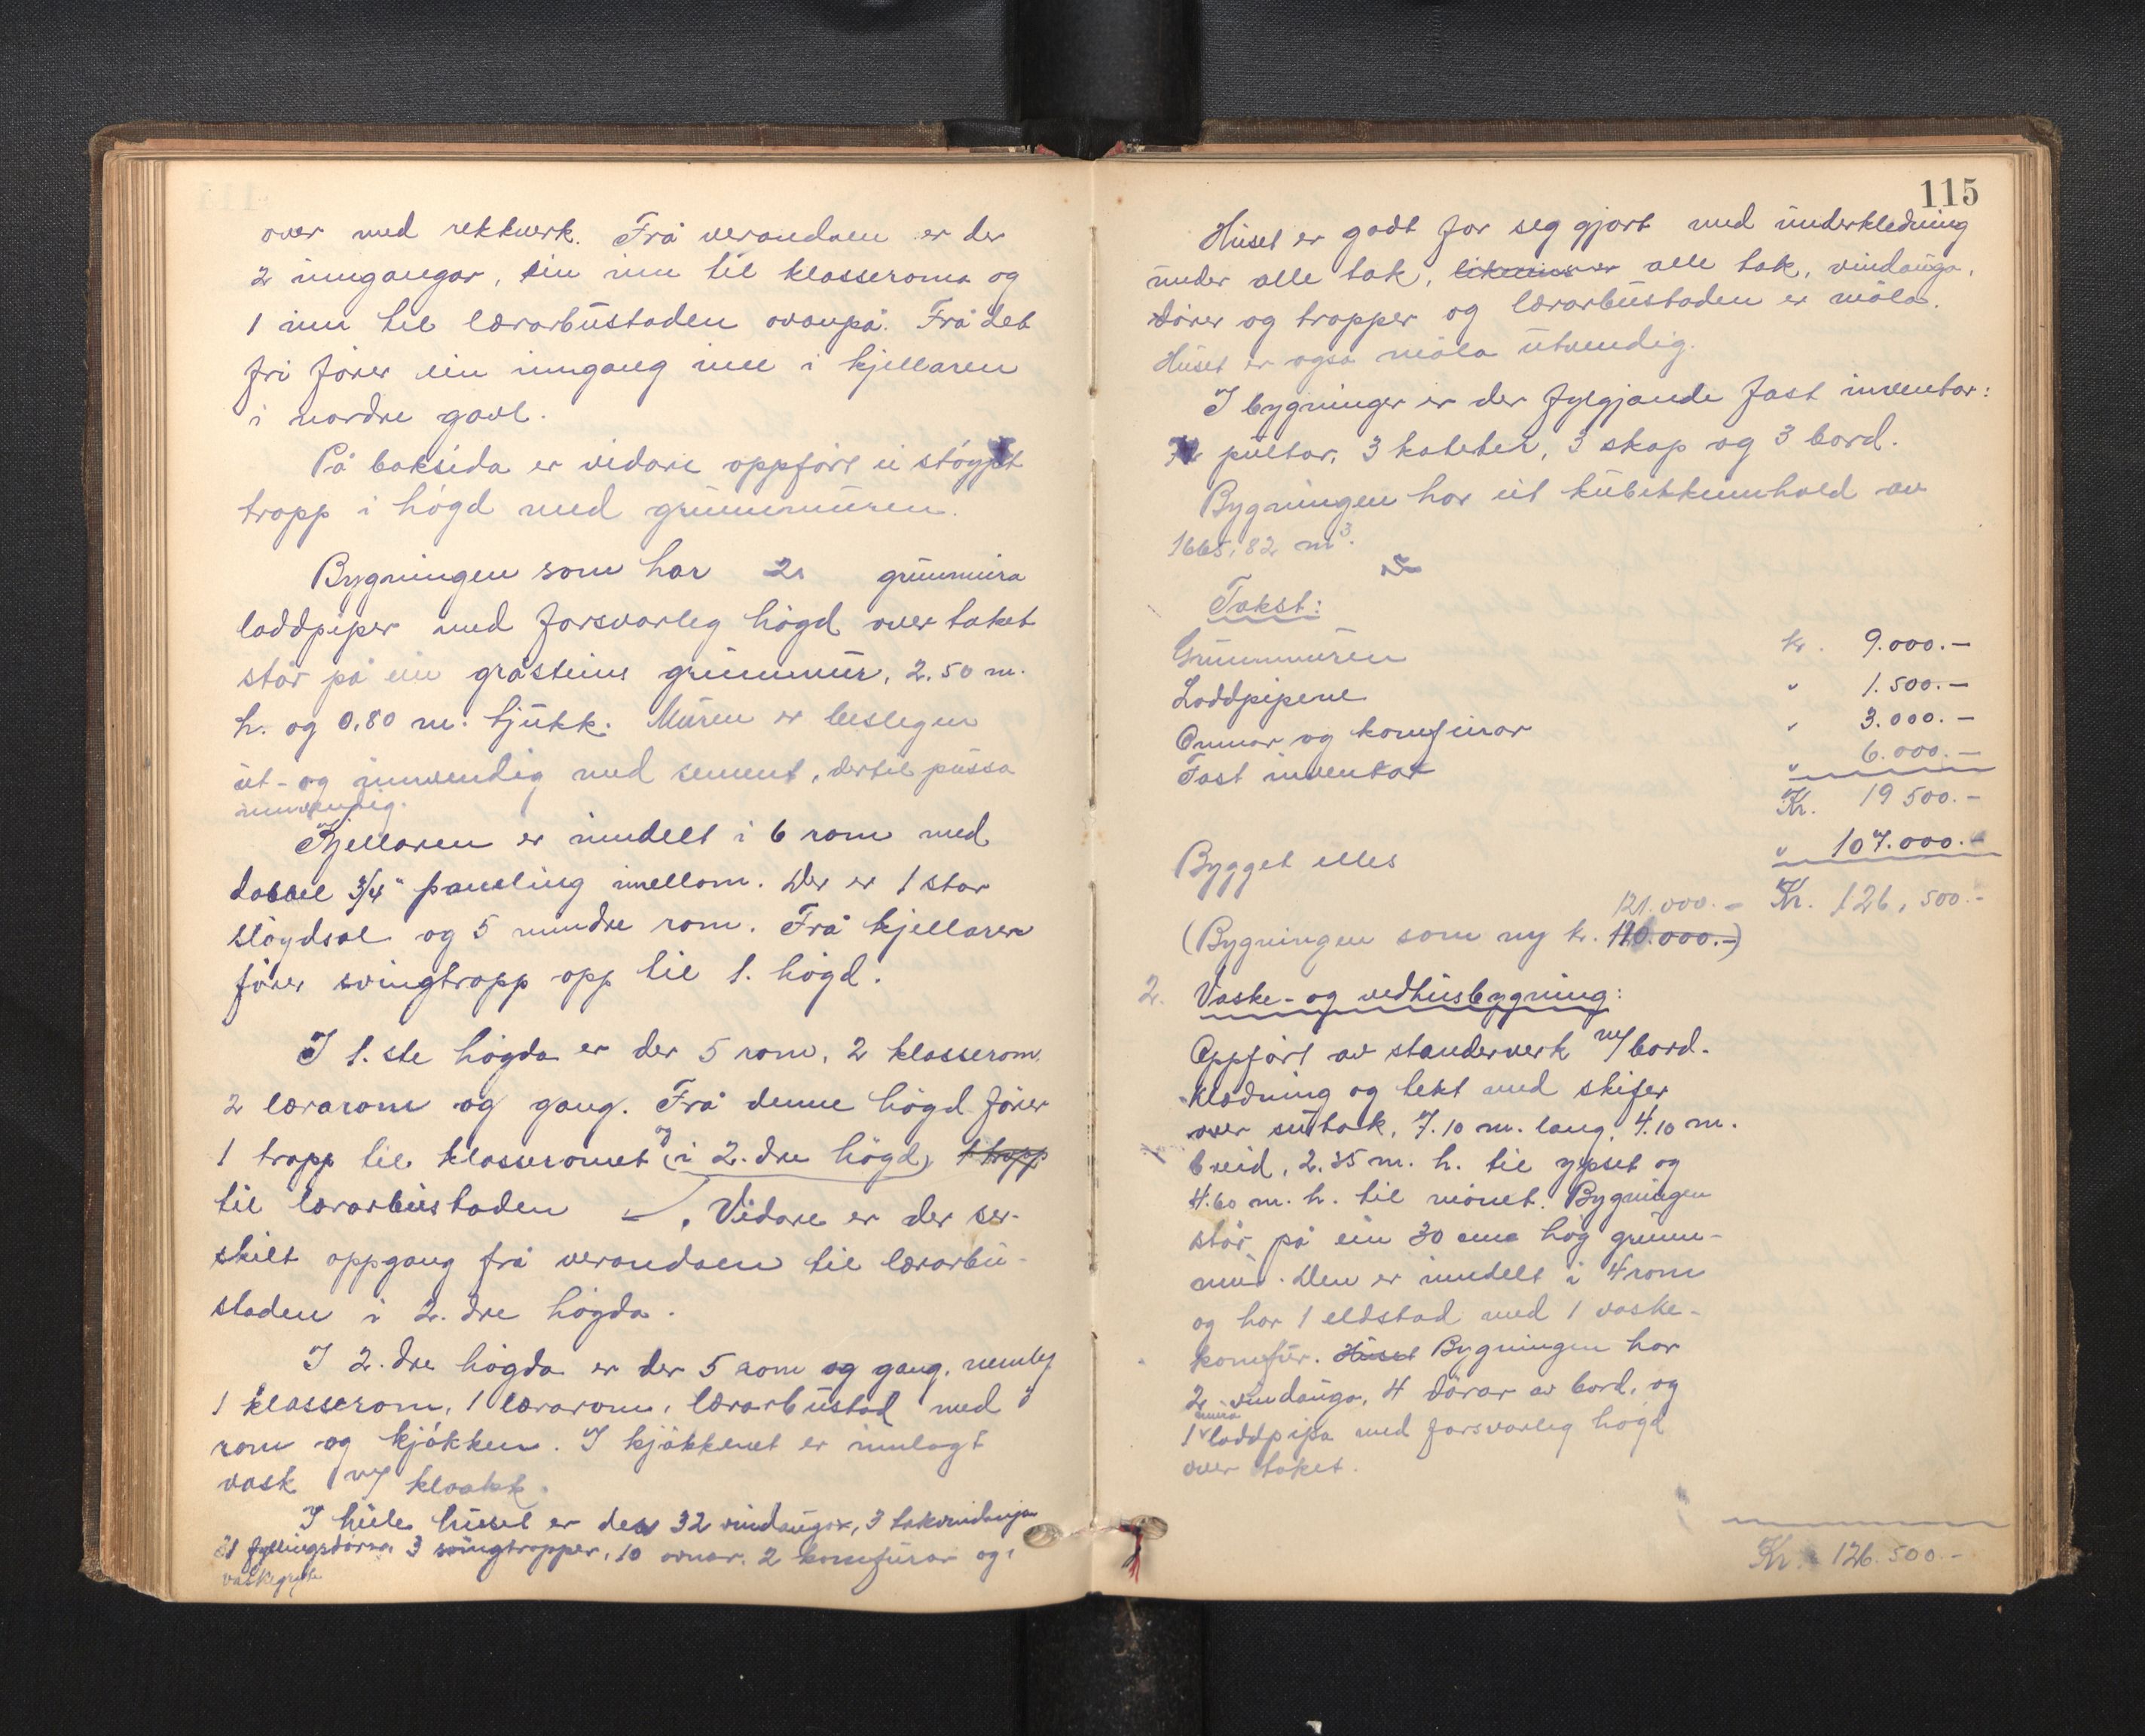 over med rekkverk. Frå verandaen er der
2 inngangar, ein inn til klasseroma og
1 inn til lærarbustaden ovanpå. Frå det
fri fører ein inngang inn i kjellaren
i nordre gavl.
På baksida er vidare oppført ei støypt
trapp i høgd med grunnmuren.
Bygningen som har 2 grunnmura
loddpiper med forsvarleg høgd over taket
står på ein gråsteins grunnmur, 2.50 m.
h. og 0,80 m. tjukk. Muren er beslegen
ut- og innvendig med sement, dertil pussa
innvendig.
Kjellaren er inndelt i 6 rom med
dobbel 3/4" paneling imellom. Der er 1 stor
sløydsal og 5 mindre rom. Frå kjellaren
fører svingtrapp opp til 1. høgd.
I 1.ste høgda er der 5 rom, 2 klasserom,
2 lærarom og gang. Frå denne høgd fører
1 trapp til klasseromet og (i 2.dre høgd) 1 trapp
til lærarbustaden. Vidare er der ser-
skilt oppgang frå verandaen til lærarbu-
staden i 2.dre høgda.
I 2.dre høgda er der 5 rom og gang, nemleg
1 klasserom, 1 lærarom, lærarbustad med
rom og kjøkken. I kjøkkenet er innlagt
vask m/ kloakk.
I heile huset er der 32 vindaugo, 3 takvindaugo
21 fyllingsdører 3 svingtrapper, 10 ovnar, 2 komfurar og 1
vaskegryte
115
Huset er godt for seg gjort med underkledning
under alle tak, likeeins er alle tak, vindauga,
dører og trapper og lærarbustaden er måla.
Huset er også måla utvendig.
I bygninger er der fylgjande fast inventar:
pultar, 3 kateter, 3 skap og 3 bord.
Bygningen har eit kubikkinnhald av
1665,82 m³.
Takst:
Grunnmuren kr. 9.000.-
Loddpipene " 1.500.-
Omnar og komfurar " 3.000.-
Fast inventar " 6.000.-
Kr. 19 500.-
Bygget elles " 107.000.-
121.000.- Kr. 126,500.-
(Bygningen som ny kr. 120.000.-)
2. Vaske- og vedhusbygning:
Oppført av standerverk m/bord-
kledning og tekt med skifer
over sutak, 7.10 m. lang, 4.10 m.
breid, 2.35 m. h. til gypset og
4.60 m. h. til mønet. Bygningen
står på ein 30 cm høg grunn-
mur. Den er inndelt i 4 rom
og har 1 eldstad med 1 vaske-
komfur. Huset Bygningen har
2 vindauga, 4 dørar av bord, og
1 mura loddpipa med forsvarleg høgd
over taket.
Kr. 126.500.-